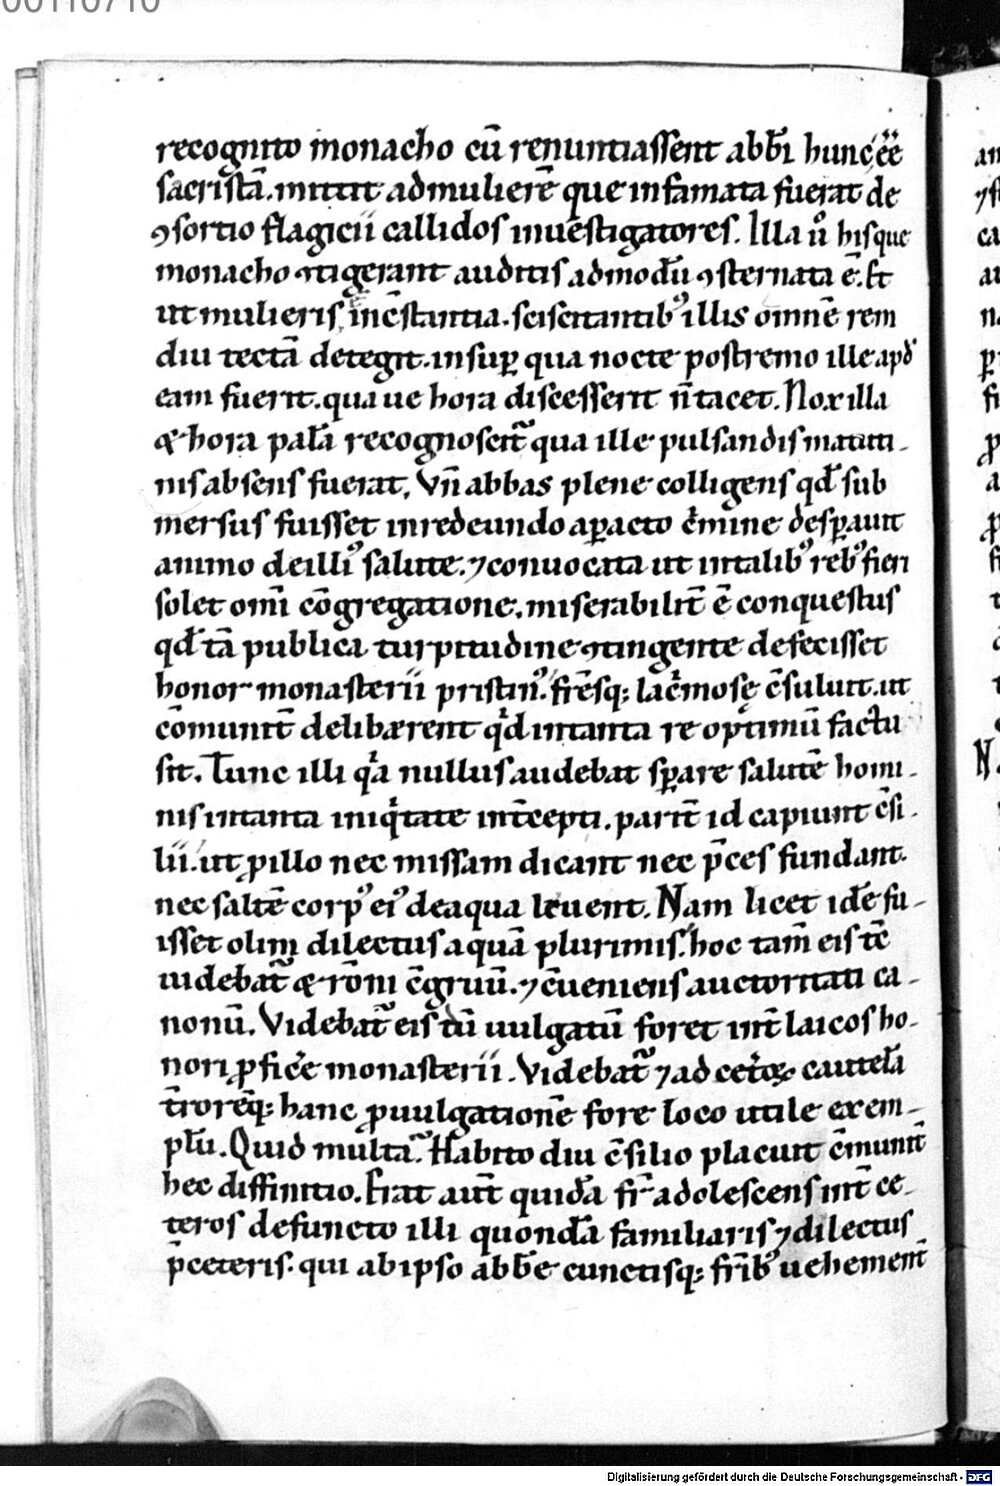 00110710
recognito monacho cū renuntiassent abbĩ hunc ēē
sacristā. mittit ad mulierē que infamata fuerat de
ꝯsortio flagicii callidos inuestigatores. Illa ũ hisque
monacho ꝯtigerant auditis admodū ꝯsternata ē. Et
ut mulieris incōstantia. sciscitantibꝰ illis omnē rem
diu tectā detegit. insuꝑ qua nocte postremo ille apđ
eam fuerit. qua ue hora discesserit n̄ tacet. Nox illa
& hora palā recognoscit᷑ qua ille pulsandis matuti-
nis absens fuerat. Vn̄ abbas plene colligens qđ sub
mersus fuisset in redeundo a ꝑacto c̄mine desꝑauit
animo de illiꝰ salute. ⁊ conuocata ut in talibꝰ rebꝰ fieri
solet omī cōgregatione. miserabilit̄ ē conquestus
qđ tā publica turpitudine ꝯtingente defecisset
honor monasterii pristinꝰ. fr̄esq; lac̄mose c̄suluit. ut
cōmunit̄ delibærent qͥd in tanta re optimū factu
sit. Tunc illi qͥa nullus audebat sꝑare salutē homi-
nis in tanta iniqͥtate int̄cepti. parit̄ id capiunt c̄si-
lii. ut ꝓ illo nec missam dicant nec p̄ces fundant.
nec saltē corpꝰ eiꝰ de aqua leuent. Nam licet idē fu-
isset olim dilectus a quā plurimis. hoc tam̄ eis tc̄
uidebat᷑ & rōni c̄gruū. ⁊ c̄ueniens auctoritati ca-
nonū. Videbat᷑ eis dū uulgatū foret int̄ laicos ho-
nori ꝓfice᷑ monasterii. Videbat᷑ ⁊ ad cet̄oꝝ cautelā
t̄roreq̄; hanc ꝓuulgationē fore loco utile exem-
plū. Quid multa. Habito diu c̄silio placuit c̄munit̄
hec diffinitio. Erat aut̄ quidā fr̄ adolescens int̄ ce-
teros defuncto illi quondā familiaris ⁊ dilectus
p̄ceteris. qui ab ipso abbe cunctisq; fr̄ibꝰ uehement̄
Digitalisierung gefördert durch die Deutsche Forschungsgemeinschaft - DFG